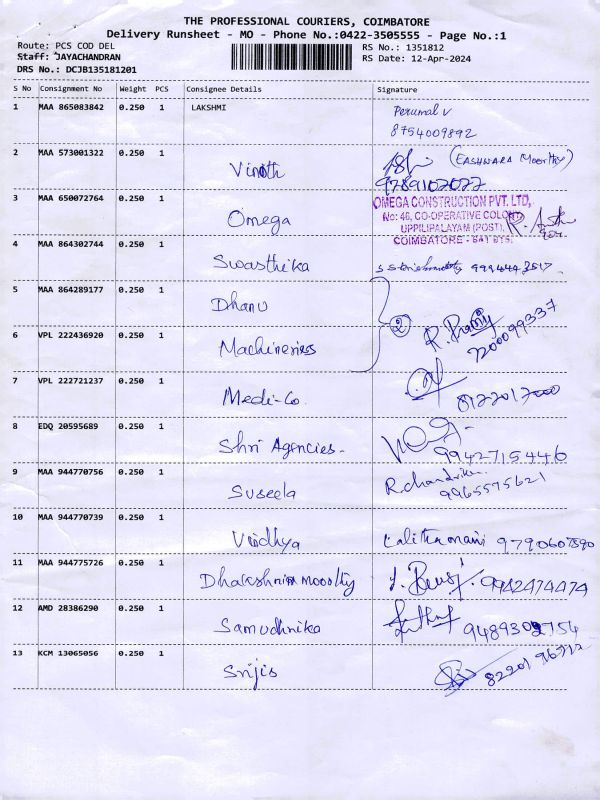 THE PROFESSIONAL COURIERS, COIMBATORE
Delivery Runsheet - MO - Phone No.:0422-3505555 - Page No.:1
Route: PCS COD DEL
RS No.: 1351812
Staff: JAYACHANDRAN
RS Date: 12-Apr-2024
DRS No.: DCJB135181201
S No Consignment No Weight PCS Consignee Details Signature
1 MAA 865083842 0.250 1 LAKSHMI Perumal v
8754009892
2 MAA 573001322 0.250 1 Vinoth (EASHWARA Moorthy)
9789102022
3 MAA 650072764 0.250 1 Omega
OMEGA CONSTRUCTION PVT. LTD,
No: 46, CO-OPERATIVE COLONY
UPPILIPALAYAM (POST),
COIMBATORE - 641 015.
4 MAA 864302744 0.250 1 Swasthika
5 MAA 864289177 0.250 1 Dhanu
2
6 VPL 222436920 0.250 1 Machineries
7200099337
7 VPL 222721237 0.250 1 Medi-Co
8122017000
8 EDQ 20595689 0.250 1 Shri Agencies-
9942715446
9 MAA 944770756 0.250 1 Suseela R.chandrika
9965575621
10 MAA 944770739 0.250 1 Vidhya Lalithamani 9790607590
11 MAA 944775726 0.250 1 9942474474
12 AMD 28386290 0.250 1 Samudhrika
13 KCM 13065056 0.250 1 Srijis